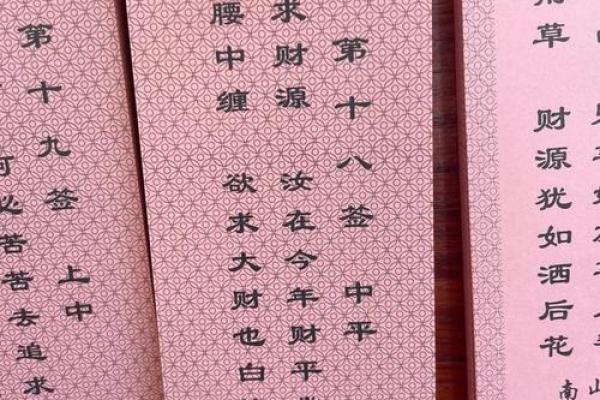 草 财源犹如洒后花
南山
第十八签 中平
求财源 汝在今年财平
腰中缠 欲求大财也白
第十九签 上中
必苦苦去追求